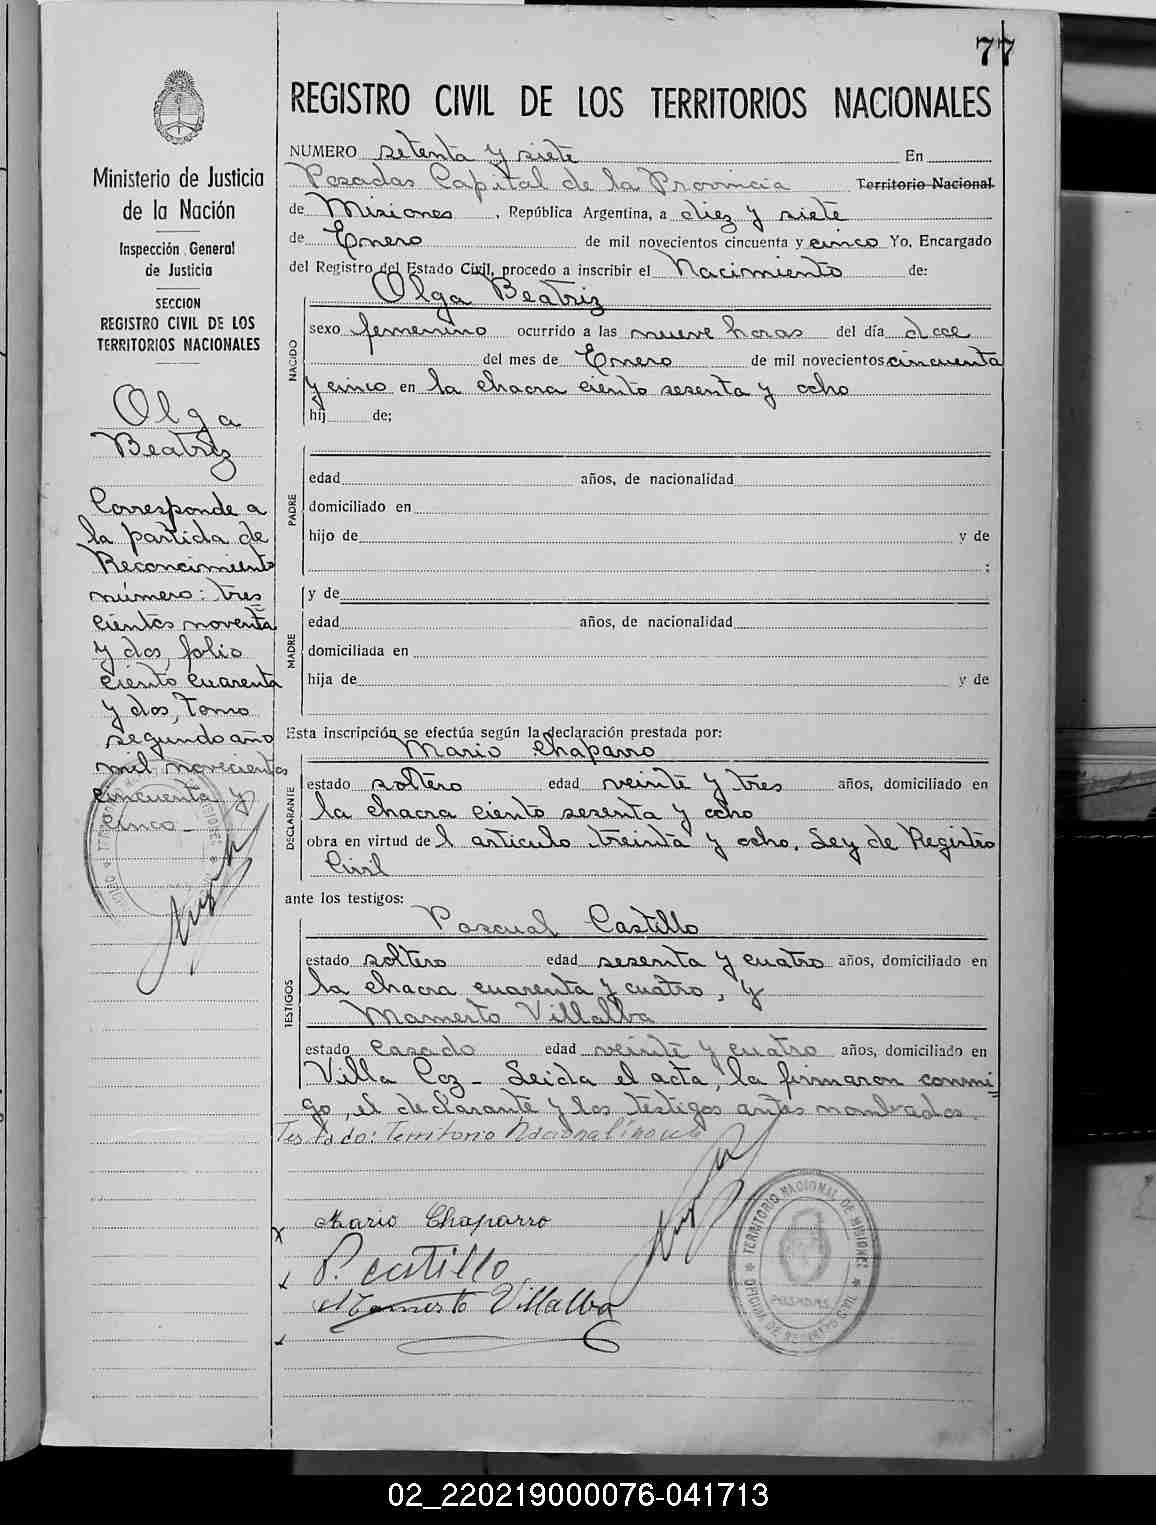 77
REGISTRO CIVIL DE LOS TERRITORIOS NACIONALES
Ministerio de Justicia
de la Nación
Inspección General
de Justicia
SECCION
REGISTRO CIVIL DE LOS
TERRITORIOS NACIONALES
Olga
Beatriz
Corresponde a
la partida de
Reconocimiento
número: tres
cientos noventa
y dos, folio
ciento cuarenta
y dos, Tomo
segundo año
mil novecientos
cincuenta y
cinco -
NUMERO setenta y siete En
Posadas Capital de la Provincia Territorio Nacional
de Misiones, República Argentina, a diez y siete
de Enero de mil novecientos cincuenta y cinco Yo, Encargado
del Registro del Estado Civil, procedo a inscribir el Nacimiento de:
Olga Beatriz
NACIDO
sexo femenino ocurrido a las nueve horas del día doce
del mes de Enero de mil novecientos cincuenta
y cinco en la chacra ciento sesenta y ocho
hij de;
PADRE
edad años, de nacionalidad
domiciliado en
hijo de y de
;
MADRE
y de
edad años, de nacionalidad
domiciliada en
hija de y de
Esta inscripción se efectúa según la declaración prestada por:
Mario Chaparro
DECLARANTE
estado soltero edad veinte y tres años, domiciliado en
la chacra ciento sesenta y ocho
obra en virtud del articulo treinta y ocho, Ley de Registro
Civil
ante los testigos:
Pascual Castillo
TESTIGOS
estado soltero edad sesenta y cuatro años, domiciliado en
la chacra cuarenta y cuatro, y
Mamerto Villalba
estado casado edad veinte y cuatro años, domiciliado en
Villa Coz - Leida el acta, la firmaron conmi
go, el declarante y los testigos antes nombados.
Testado: Territorio Nacional
Mario Chaparro
P. castillo
Mamerto Villalba
TERRITORIO NACIONAL DE MISIONES
OFICINA DE REGISTRO CIVIL
POSADAS
02_220219000076-041713